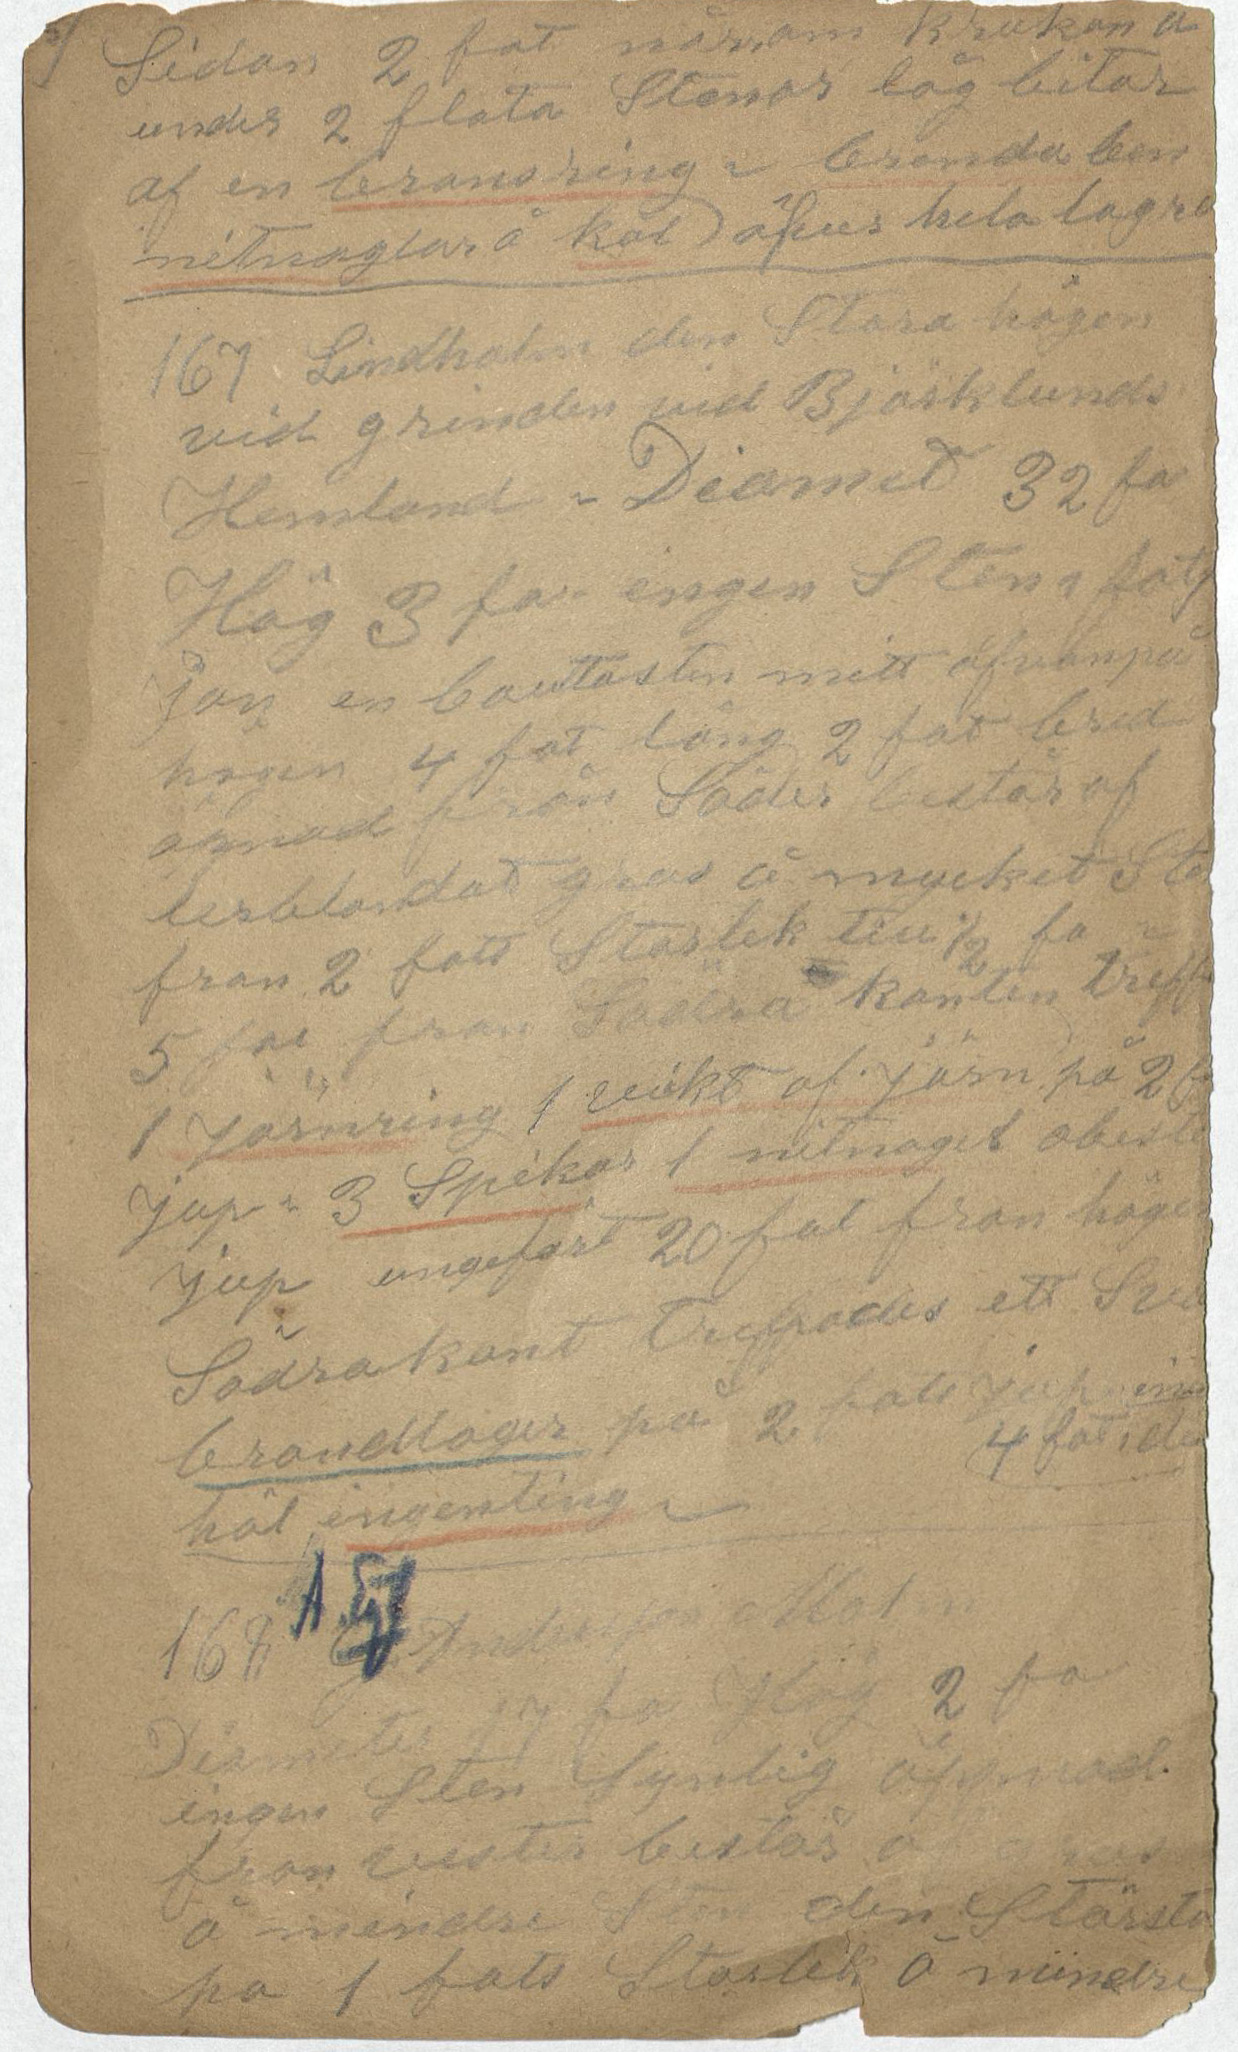 Sidan 2 fot närom krukan a
under 2 flata Stenar låg bitar
af en bronsring ~ brenda ben
nitnaglar å kol öfver hela lagre
167 Lindholm den Stora högen
vid grinden vid Björklunds
Hemland - Diamet 32 fo
Hög 3 fo - engen Sten, fotj
jan en bautasten mitt ofvanpå
högen 4 fot lång 2 fot bred
öpnad från Söder består af
lerblandat grus å mycket Ste
fran 2 fots Storlek till ½ fo ~
5 fot fran Södra kanten treff
1 järnring 1 vikt af järn på 2 f
jup ~ 3 Spikar 1 nitnagel obest
jup ungefärt 20 fot fran högen
Södra kant treffades ett Sva
brandlager på 2 fots jup in
4 fot, de
höl ingenting ~
168 A Andersson Holm
Diameter 17 fo Hög 2 fo
ingen Sten Synlig öppnad
fran vester består
å mindre Sten den Största
pa 1 fots Storlek å mindre